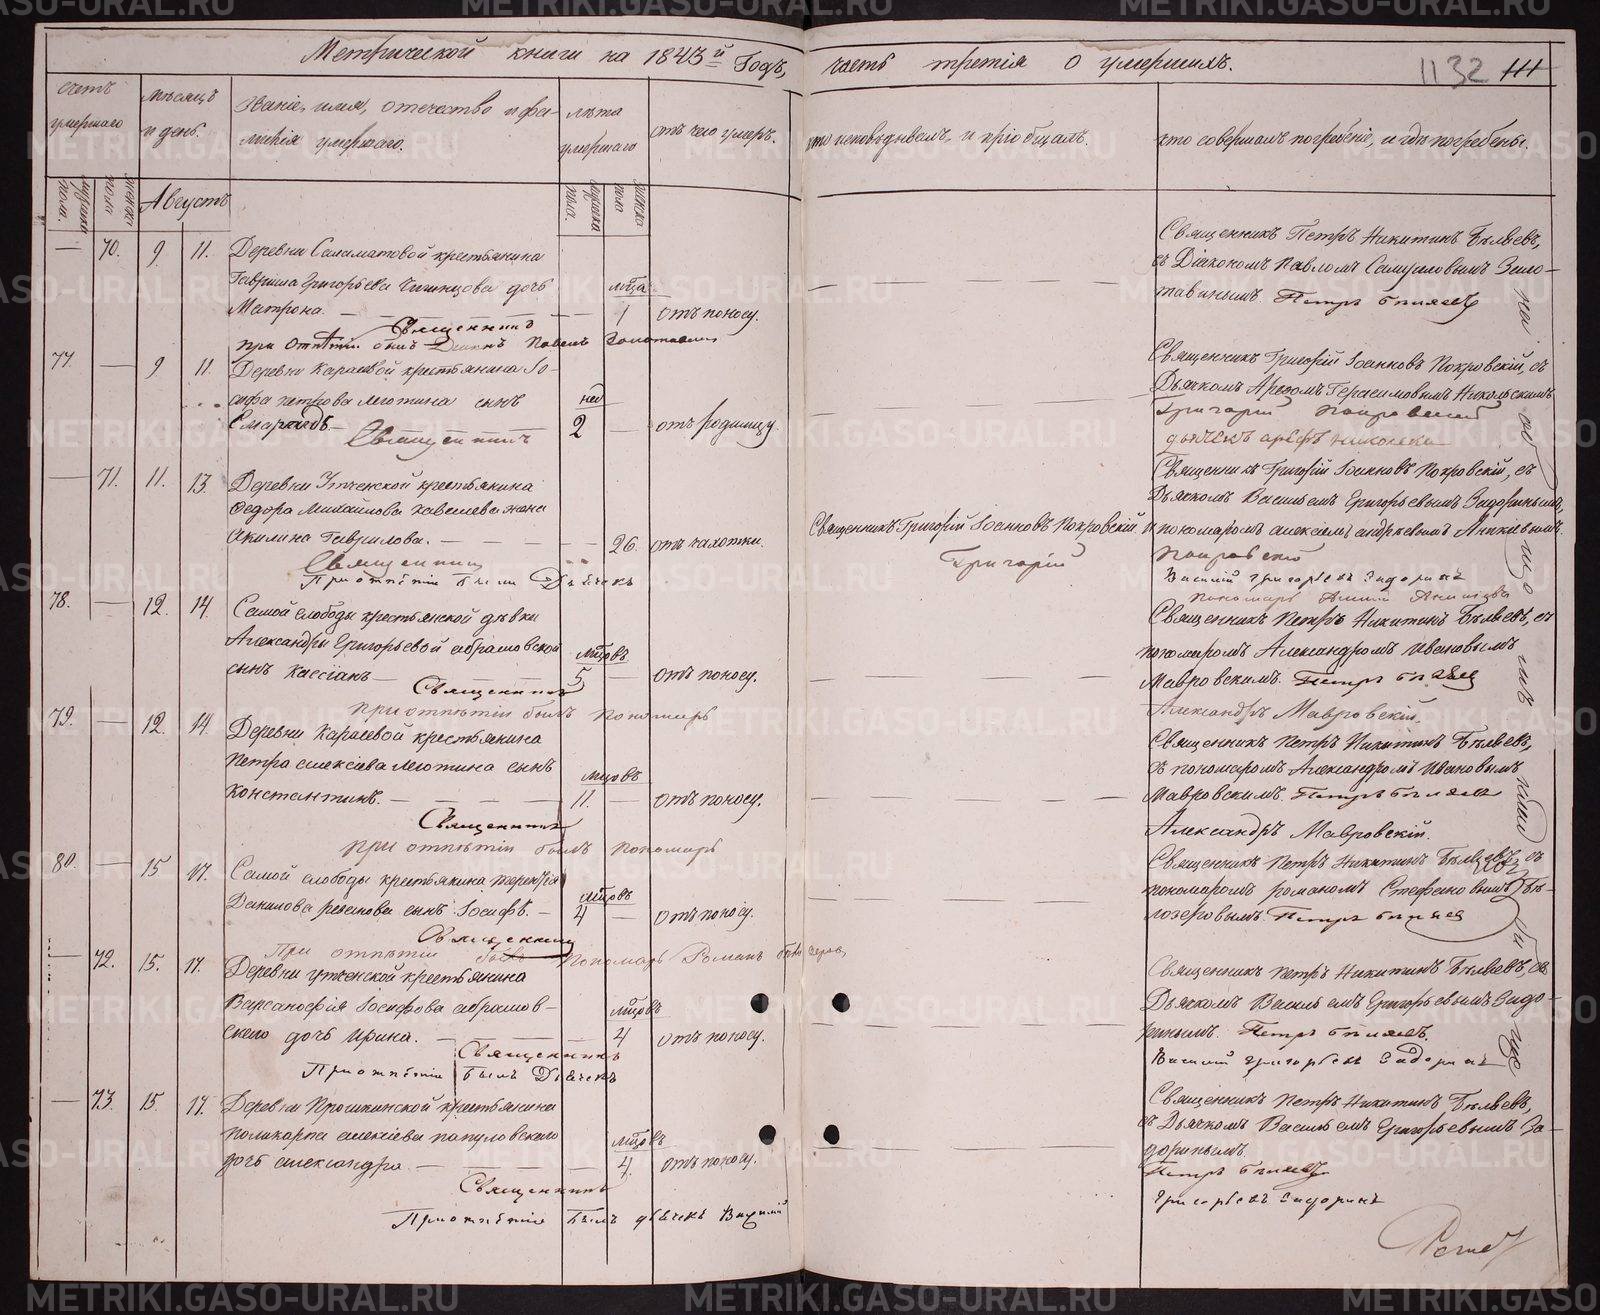 Метрической книги на 1843й Годъ, часть третія о умершихъ.
1132
счетъ умершаго
мѣсяцъ и день.
Званіе, имя, отечество и фамилія умершаго.
лѣта умершаго
отъ чего умеръ.
кто исповѣдывалъ, и пріобщалъ.
кто совершалъ погребеніе, и гдѣ погребены.
мужеска пола.
женска пола
Августъ
мужеска пола.
женска пола
— 70. 9 11. Деревни Саламатовой крестьянина
Гаврила Григорьева дочь мѣца
Матрона. — 1 отъ поносу.
Священникъ
при Отпѣтіи былъ Діаконъ Павелъ Золотавинъ
Священникъ Петръ Никитинъ Бѣляевъ,
съ Діакономъ Павломъ Самуиловымъ Золо-
тавинымъ. Петръ Бѣляевъ
77. — 9 11 Деревни Караевой крестьянина Іо-
сифа Петрова Леготина сынъ нед
Смарагдъ — 2 — отъ родимцу
Священникъ
Священникъ Григорій Іоанновъ Покровскій, съ
Дьячкомъ Арефомъ Герасимовымъ Никольскимъ
Григорій Покровскій
дьячекъ Арефъ Никольска
— 71. 11. 13. Деревни Утченской крестьянина
Федора Михайлова жена
Акилина Гаврилова. — 26. отъ чахотки.
Священникъ
При отпѣтіи Были Дьячекъ
Священникъ Григорій Іоанновъ Покровскій.
Григорій
Священникъ Григорій Іоанновъ Покровскій, съ
Дьячкомъ Васильемъ Григорьевымъ Задоринымъ,
и пономаромъ Алексѣемъ Андреевымъ
Покровскій
Василій Григорьевъ Задоринъ
пономарь
78. — 12 14. Самой слободы крестьянской дѣвки
Александры Григорьевой Абрамовской мѣцовъ
сынъ Кассіанъ — 5 — отъ поносу.
Священникъ
при отпѣтіи былъ пономарь
Священникъ Петръ Никитинъ Бѣляевъ, съ
пономаромъ Александромъ Ивановымъ
Мавровскимъ. Петръ Бѣляев
Александръ Мавровскій.
79. — 12. 14. Деревни Караевой крестьянина
Петра Алексіева Леготина сынъ мѣцовъ
Константинъ. — 11. — отъ поносу.
Священникъ
при отпѣтіи былъ пономарь
Священникъ Петръ Никитинъ Бѣляевъ,
съ пономаромъ Александромъ Ивановымъ
Мавровскимъ. Петръ Бѣляев
Александръ Мавровскій.
80. — 15 17. Самой слободы крестьянина Терентія
Данилова сынъ Іосифъ. — мѣцовъ 4 — отъ поносу.
Священникъ
При отпѣтіи былъ пономарь Романъ Бѣлозеров
Священникъ Петръ Никитинъ Бѣляевъ, съ
пономаромъ Романомъ Стефановымъ Бѣ-
лозеровымъ. Петръ Бѣляев
— 72. 15. 17. Деревни Утченской крестьянина
Варсанофія Іосифова Абрамов- мѣцовъ
скаго дочь Ирина. — 4 отъ поносу.
Священникъ
При отпѣтіи Былъ Дьячекъ
Священникъ Петръ Никитинъ Бѣляевъ, съ
Дьячкомъ Васильемъ Григорьевымъ Задо-
ринымъ. Петръ Бѣляев.
Василій Григорьевъ Задоринъ
— 73. 15. 17. Деревни Прошкинской крестьянина
Поликарпа Алексіева Папуловскаго мѣцовъ
дочь Александра. — 4. отъ поносу.
Священникъ
При отпѣтіи Былъ дьячекъ Василій
Священникъ Петръ Никитинъ Бѣляевъ,
съ Дьячкомъ Васильемъ Григорьевымъ За-
доринымъ.
Петръ Бѣляев
Григорьевъ Задоринъ
METRIKI.GASO-URAL.RU